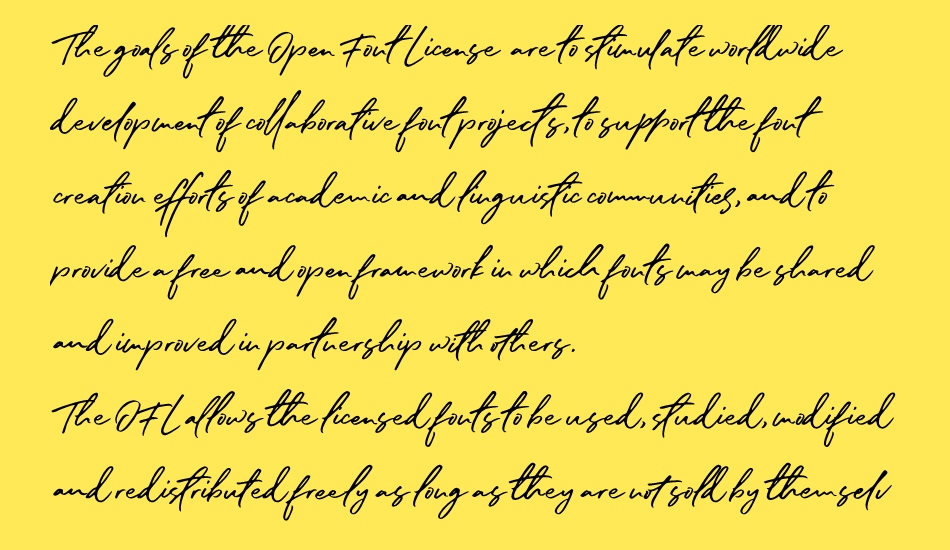 The goals of the Open Font License are to stimulate worldwide
development of collaborative font projects, to support the font
creation efforts of academic and linguistic communities, and to
provide a free and open framework in which fonts may be shared
and improved in partnership with others.
The OFL allows the licensed fonts to be used, studied, modified
and redistributed freely as long as they are not sold by themselv